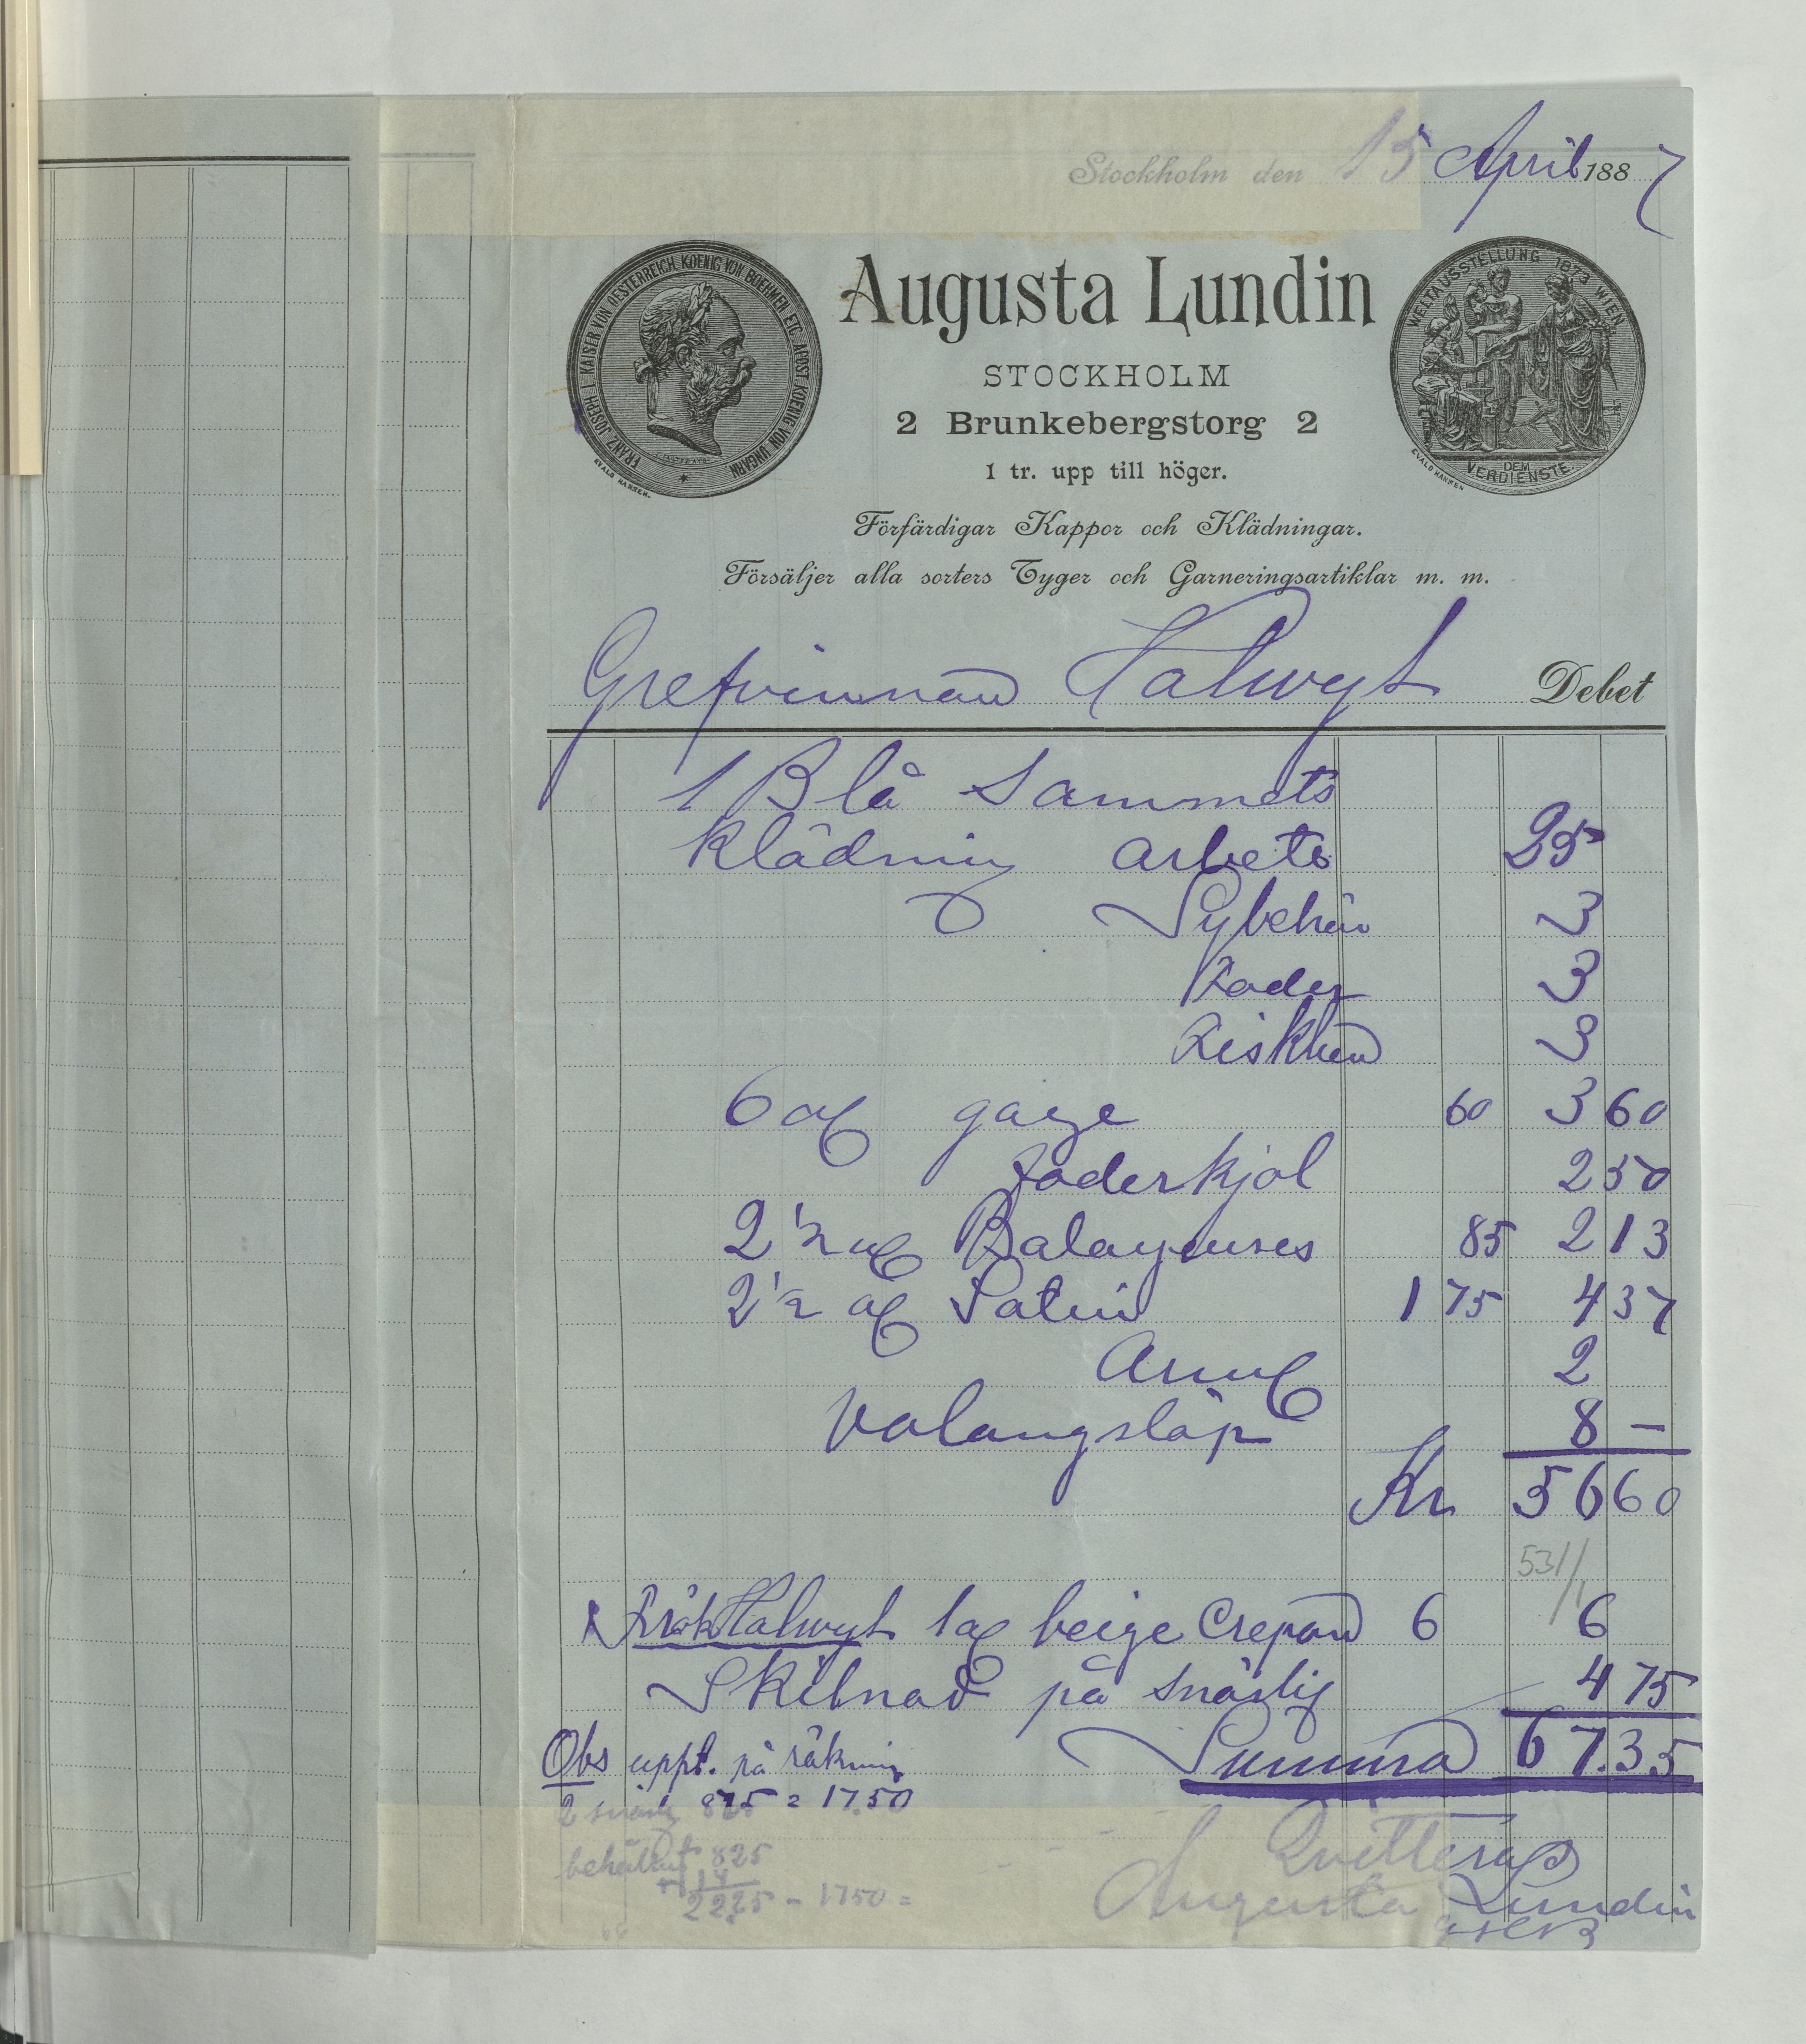 Stockholm den 15 April 1887
FRANZ JOSEPH I. KAISER VON OESTERREICH, KOENIG VON BOEHMEN ETC. APOST. KOENIG VON UNGARN
EVALD HANSEN.
Augusta Lundin
WELTAUSSTELLUNG 1873 WIEN
DEM
VERDIENSTE.
EVALD HANSEN
STOCKHOLM
2 Brunkebergstorg 2
1 tr. upp till höger.
Förfärdigar Kappor och Klädningar.
Försäljer alla sorters Tyger och Garneringsartiklar m. m.
Grefvinnan Halwyl Debet
1 Blå Sammets
klädning arbete 25
Sybehör 3
Foder 3
Fiskben 3
6 al gaze 60 3 60
Foderkjol 2 50
2 1/2 al Balayeuses 85 2 13
2 1/2 al Satin 1 75 4 37
Ärml 2
Volangsläp 8 –
Kr 56 60
531/1
Frök Halwyl 1 al beige Crepon 6 6
Skilnad på snörlif 4 75
Summa 67.35
Obs uppt. på räkning
2 snörlif 875 = 17.50
behållit 825
+ 14
2225 – 1750 =
Qvitteras
Augusta Lundin